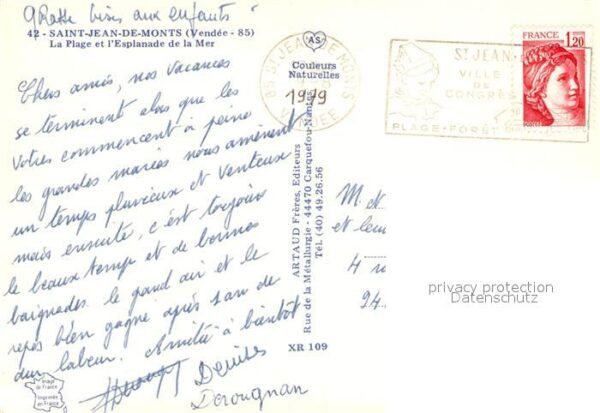 grosse bises aux enfants
42 - SAINT-JEAN-DE-MONTS (Vendée - 85)
La Plage et l'Esplanade de la Mer
Chers amis, nos vacances
se terminent alors que les
votres commencent à peine
les grandes marées nous amènent
un temps pluvieux et venteux
mais ensuite, c'est toujours
le beau temps et de bonnes
baignades. le grand air et le
repos bien gagné après 1 an de
dur labeur. Amitié à bientôt
Denise
Derougnan
Image de France
Imprimée en France
AS
Couleurs
Naturelles
ARTAUD Frères, Editeurs
Rue de la Métallurgie - 44470 Carquefou-Nantes
Tél. (40) 49.26.56
XR 109
85 ST JEAN DE MONTS
1979
VENDEE
ST JEAN
VILLE
DE
CONGRÈS
PLAGE - FORÊT
FRANCE
1,20
POSTES
M et
et leur
4 r
94
privacy protection
Datenschutz